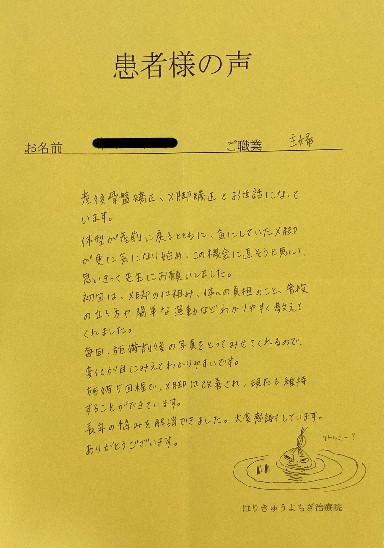 患者様の声
お名前 ご職業 主婦
産後骨盤矯正、X脚矯正とお世話になって
います。
体型が産前に戻るとともに、気にしていたX脚
が更に気になり始め、この機会に直そうと思い、
思いきって先生にお願いしました。
初回は、X脚の仕組み、体の真相のこと、普段
の立ち方や簡単な運動などわかりやすく教えて
くれました。
毎回、施術前後の写真をとってみせてくれるので、
変化が目にみえてわかりやすいです。
施術5回程で、X脚は改善され、現在も維持
することができています。
長年の悩みを解消できました。大変感謝しています。
ありがとうございます。
はりきゅうよもぎ治療院